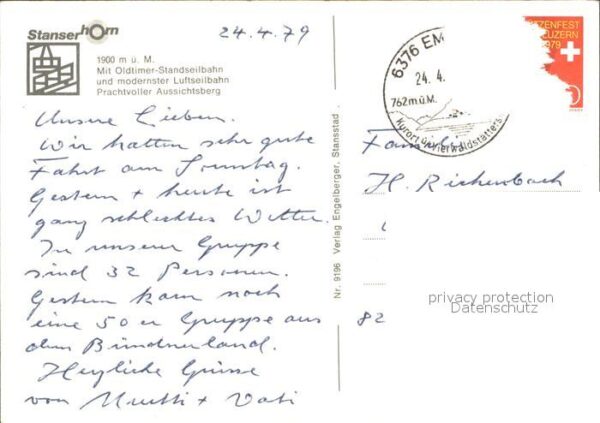 Stanserhorn
24.4.79
1900 m ü. M.
Mit Oldtimer-Standseilbahn
und modernster Luftseilbahn
Prachtvoller Aussichtsberg
Unsere Lieben.
Wir hatten sehr gute
Fahrt am Sonntag.
Gestern + heute ist
ganz schlechtes Wetter.
In unserer Gruppe
sind 32 Personen.
Gestern kam noch
eine 50er Gruppe aus
dem Bündnerland.
Herzliche Grüsse
von Mutti + Vati
Nr. 9196 Verlag Engelberger, Stansstad
6376 EM
24. 4.
762 m ü. M.
Kurort ü. Vierwaldstätters
TZENFEST
UZERN
1979
Familie
H. Richenbach
82
privacy protection
Datenschutz